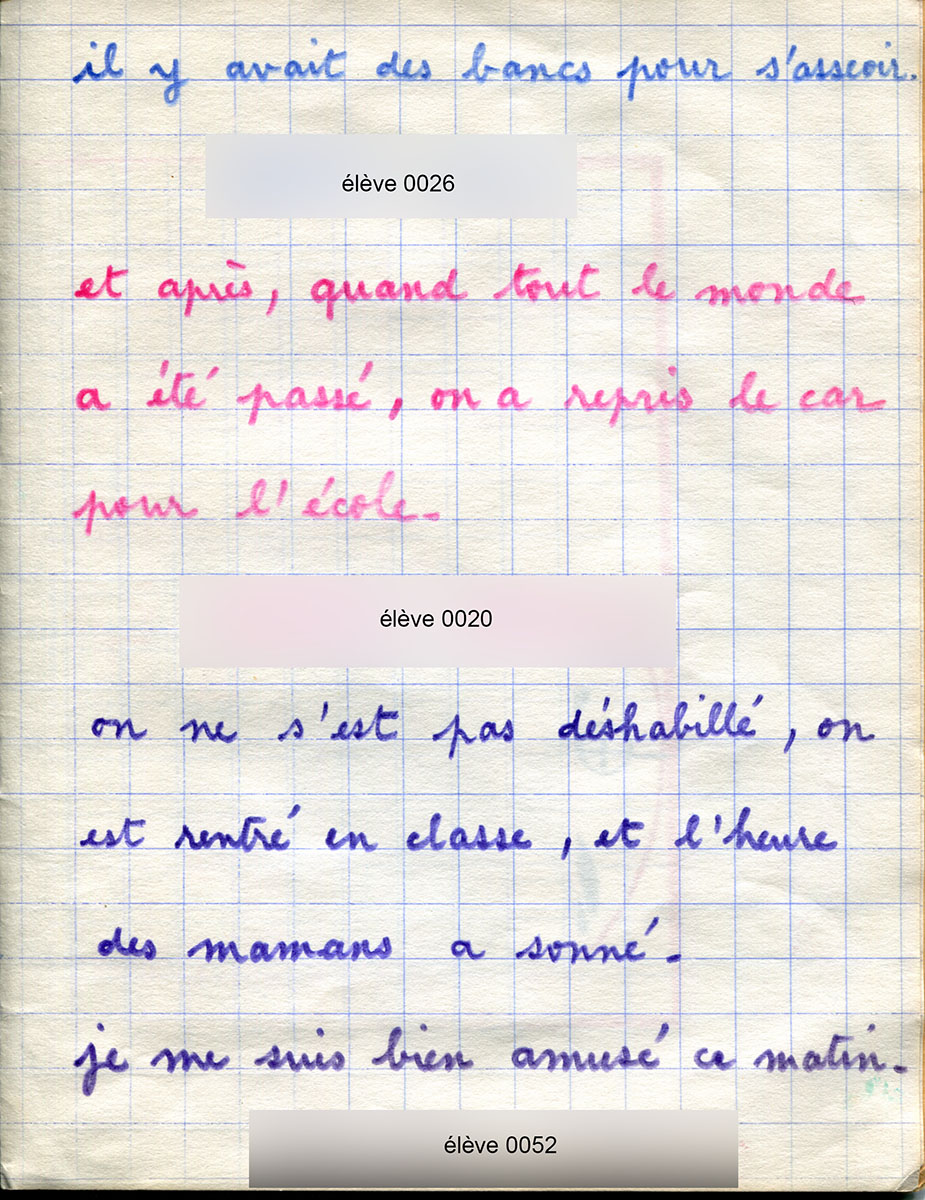 il y avait des bancs pour s'asseoir.
élève 0026
et après, quand tout le monde
a été passé, on a repris le car
pour l'école.
élève 0020
on ne s'est pas déshabillé, on
est rentré en classe, et l'heure
des mamans a sonné.
je me suis bien amusé ce matin.
élève 0052